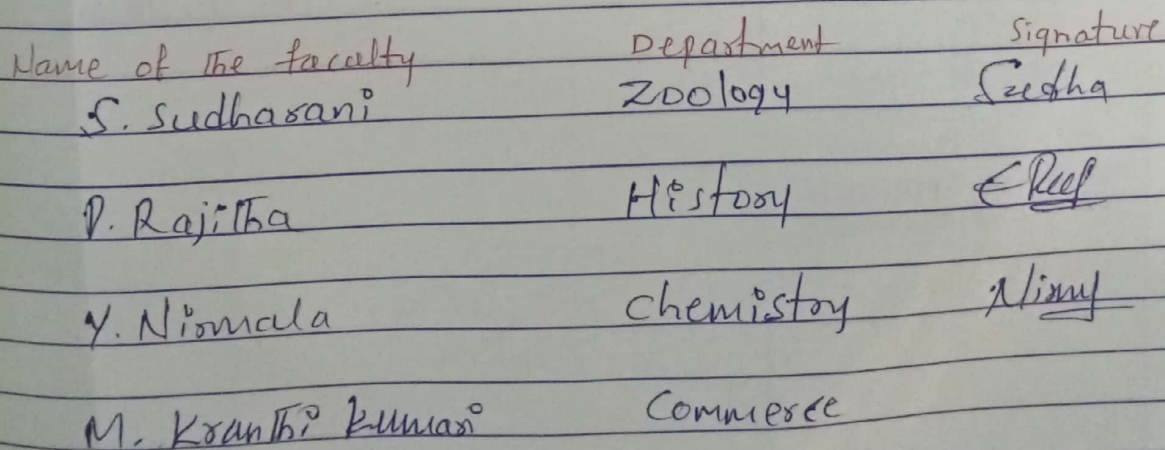 Name of the faculty Department Signature
S. Sudharani Zoology Sudha
P. Rajitha History
Y. Nirmala Chemistry
M. Kranthi Kumari Commerce